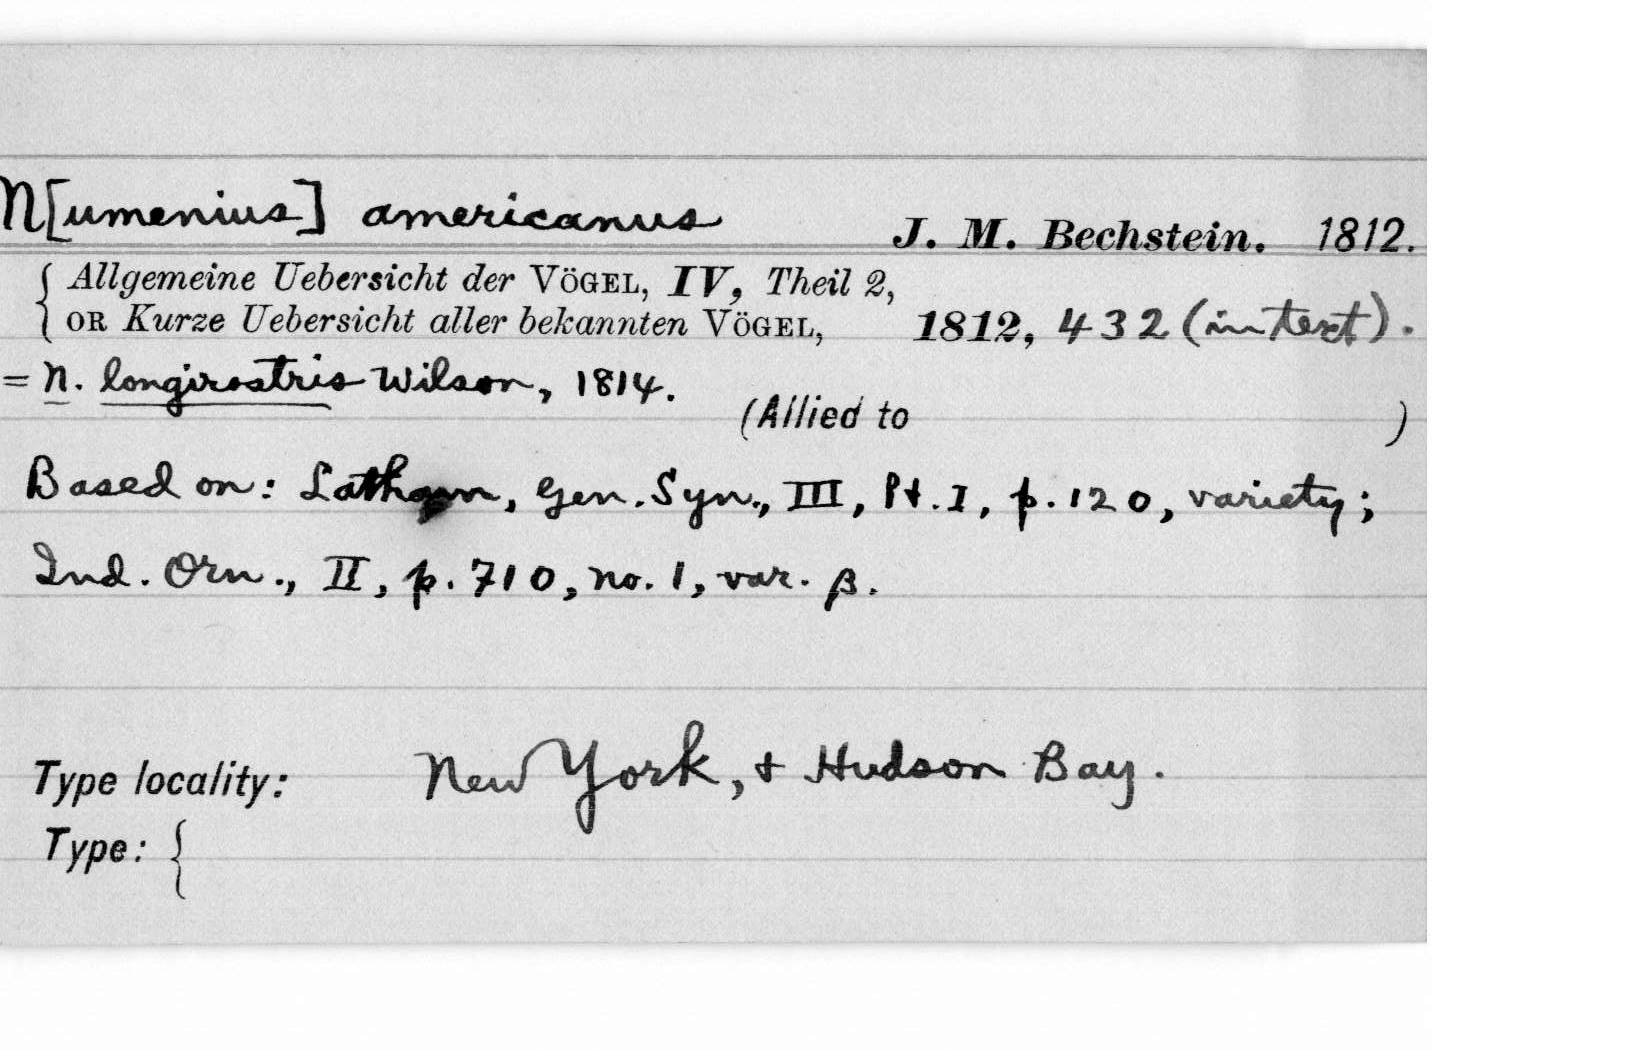 N[umenius] americanus J. M. Bechstein. 1812.
{ Allgemeine Uebersicht der VÖGEL, IV, Theil 2,
OR Kurze Uebersicht aller bekannten VÖGEL, 1812, 432 (in text).
= N. longirostris Wilson, 1814.
(Allied to )
Based on: Latham, Gen. Syn., III, Pt. I, p. 120, variety;
Ind. Orn., II, p. 710, no. 1, var. β.
Type locality: New York, + Hudson Bay.
Type: {